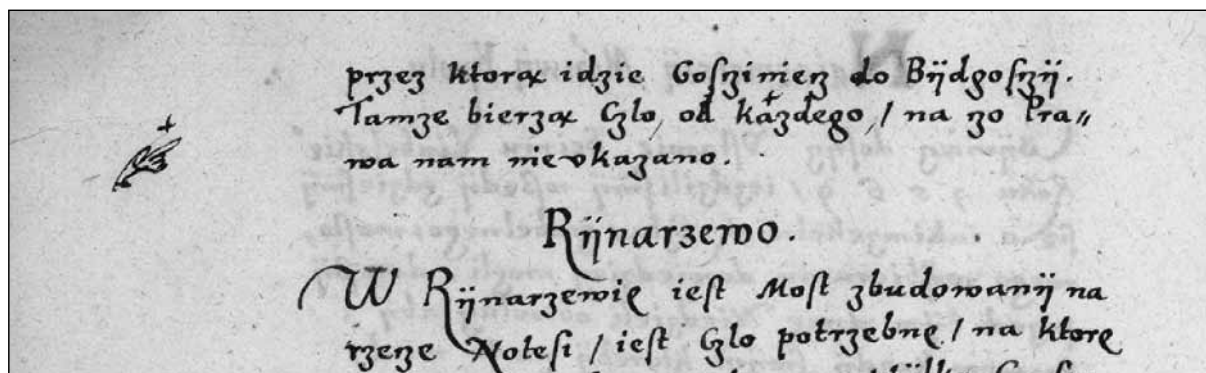 przez ktorą idzie Gosziniez do Bÿdgoszÿ.
Tamze bierzą Czlo, od kazdego, / na zo Pra„
wa nam nieokazano.
Rÿnarzewo.
W Rÿnarzewie iest Most zbudowanÿ na
rzeze Notesi / iest Czlo potrzebne / na ktore